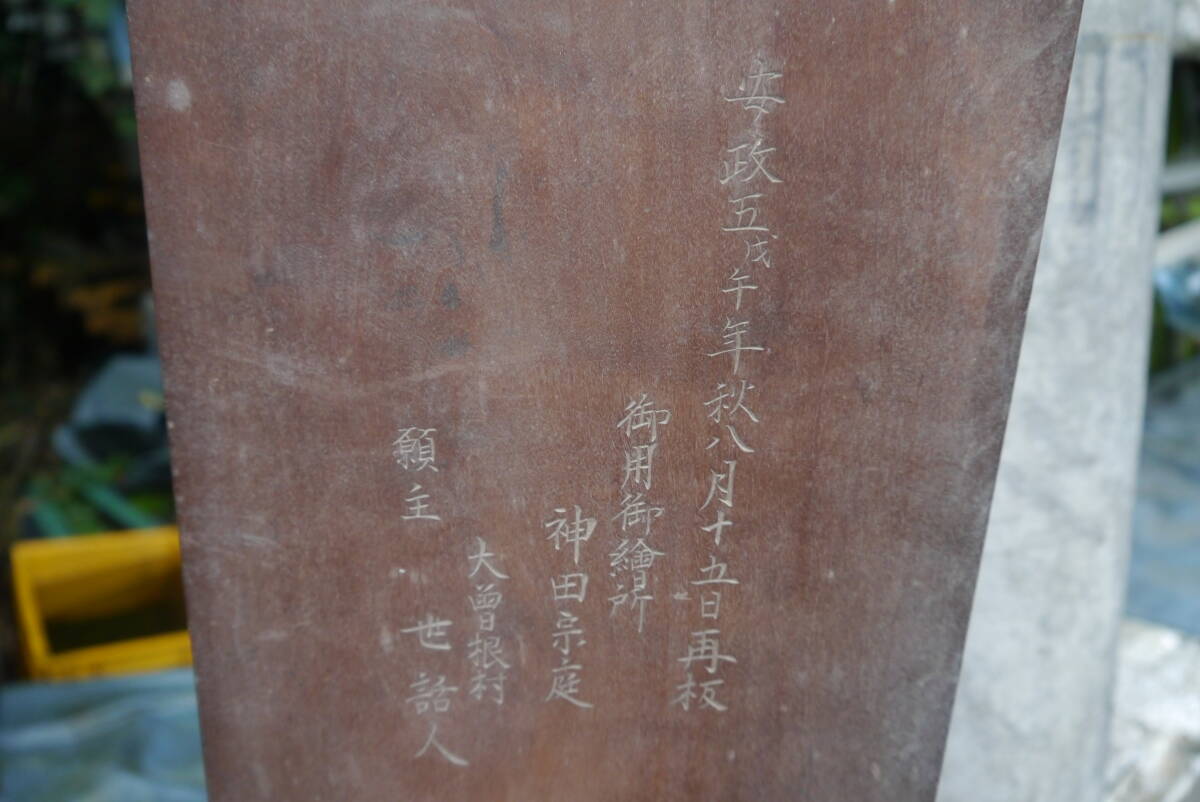 安政五戊午年秋八月十五日再板
御用御繪所
神田宗庭
大曽根村
願主 世話人